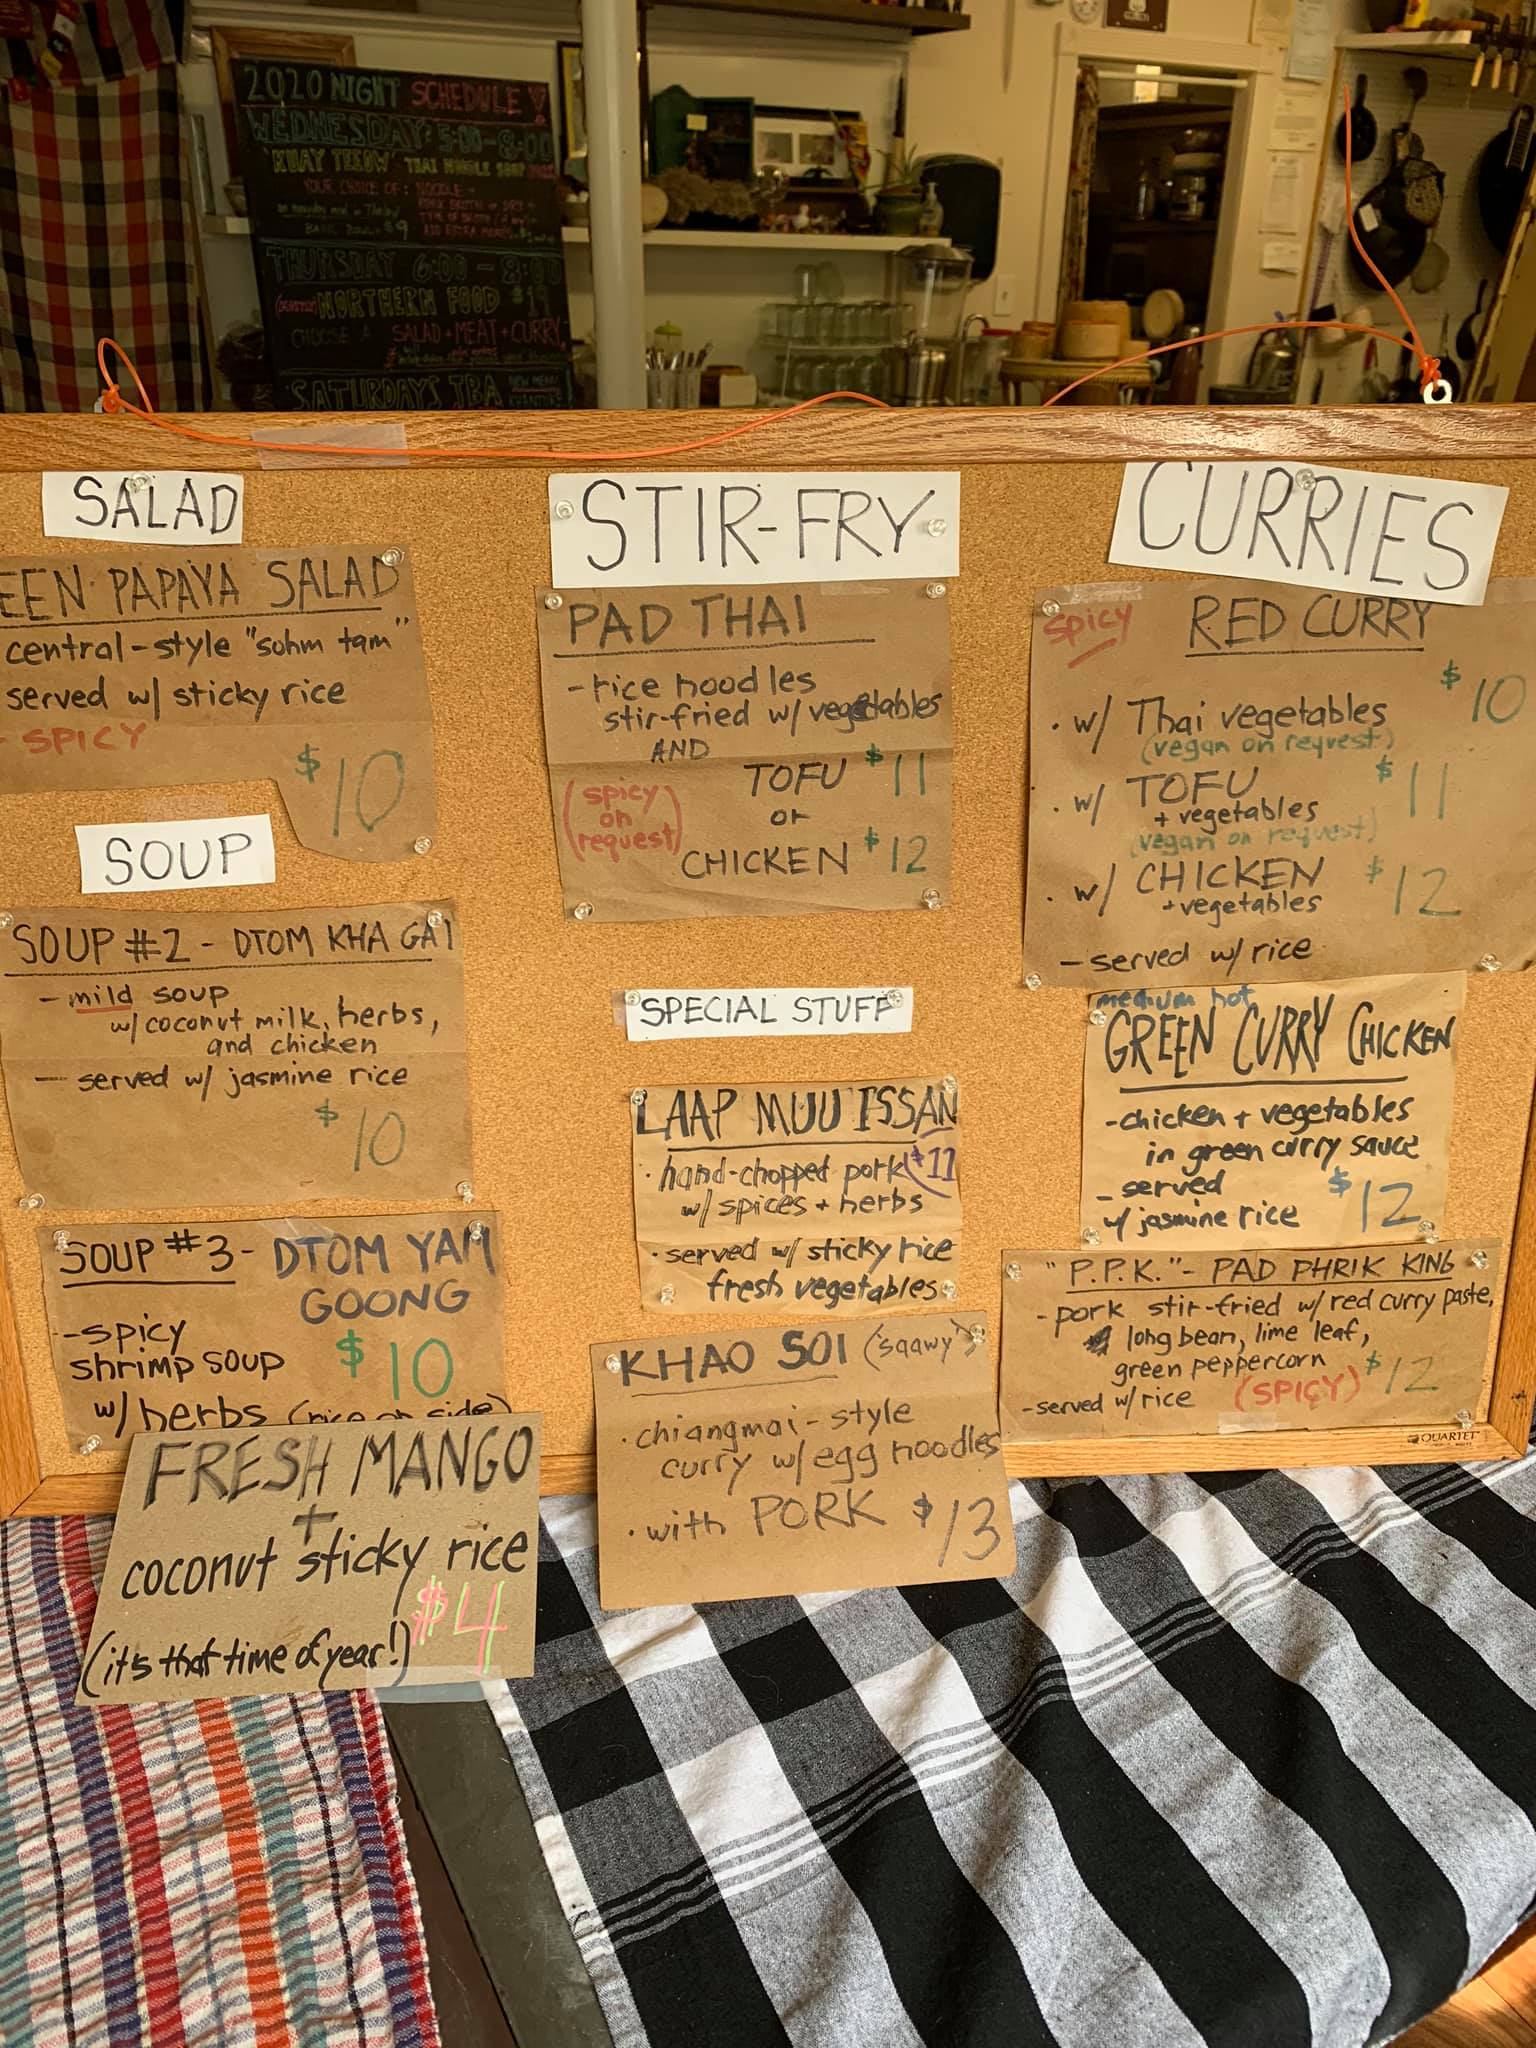 2020 NIGHT SCHEDULE
WEDNESDAY: 5:00-8:00
THAI NOODLE SOUP
YOUR CHOICE OF: NOODLE -
$9
THURSDAY 6:00 - 8:00
NORTHERN FOOD $19
CHOOSE A SALAD + MEAT + CURRY
SATURDAYS TBA
SALAD
EEN PAPAYA SALAD
central-style "sohm tam"
served w/ sticky rice
- SPICY
$10
SOUP
SOUP #2 - DTOM KHA GAI
- mild soup
w/ coconut milk, herbs,
and chicken
- served w/ jasmine rice
$10
SOUP #3 - DTOM YAM
GOONG
- spicy
shrimp soup
$10
w/ herbs (rice on side)
FRESH MANGO
+
coconut sticky rice
$4
(it's that time of year!)
STIR-FRY
PAD THAI
- rice noodles
stir-fried w/ vegetables
AND
TOFU $11
or
CHICKEN $12
(spicy
on
request)
SPECIAL STUFF
LAAP MUU ISSAN
· hand-chopped pork ($11
w/ spices + herbs
· served w/ sticky rice
fresh vegetables
KHAO SOI ("saawy")
· chiangmai-style
curry w/ egg noodles
· with PORK $13
CURRIES
spicy RED CURRY
· w/ Thai vegetables $10
(vegan on request)
· w/ TOFU $11
+ vegetables
(vegan on request)
· w/ CHICKEN $12
+ vegetables
- served w/ rice
medium hot
GREEN CURRY CHICKEN
- chicken + vegetables
in green curry sauce
- served
w/ jasmine rice $12
"P.P.K." - PAD PHRIK KING
- pork stir-fried w/ red curry paste,
long bean, lime leaf,
green peppercorn
- served w/ rice (SPICY) $12
QUARTET